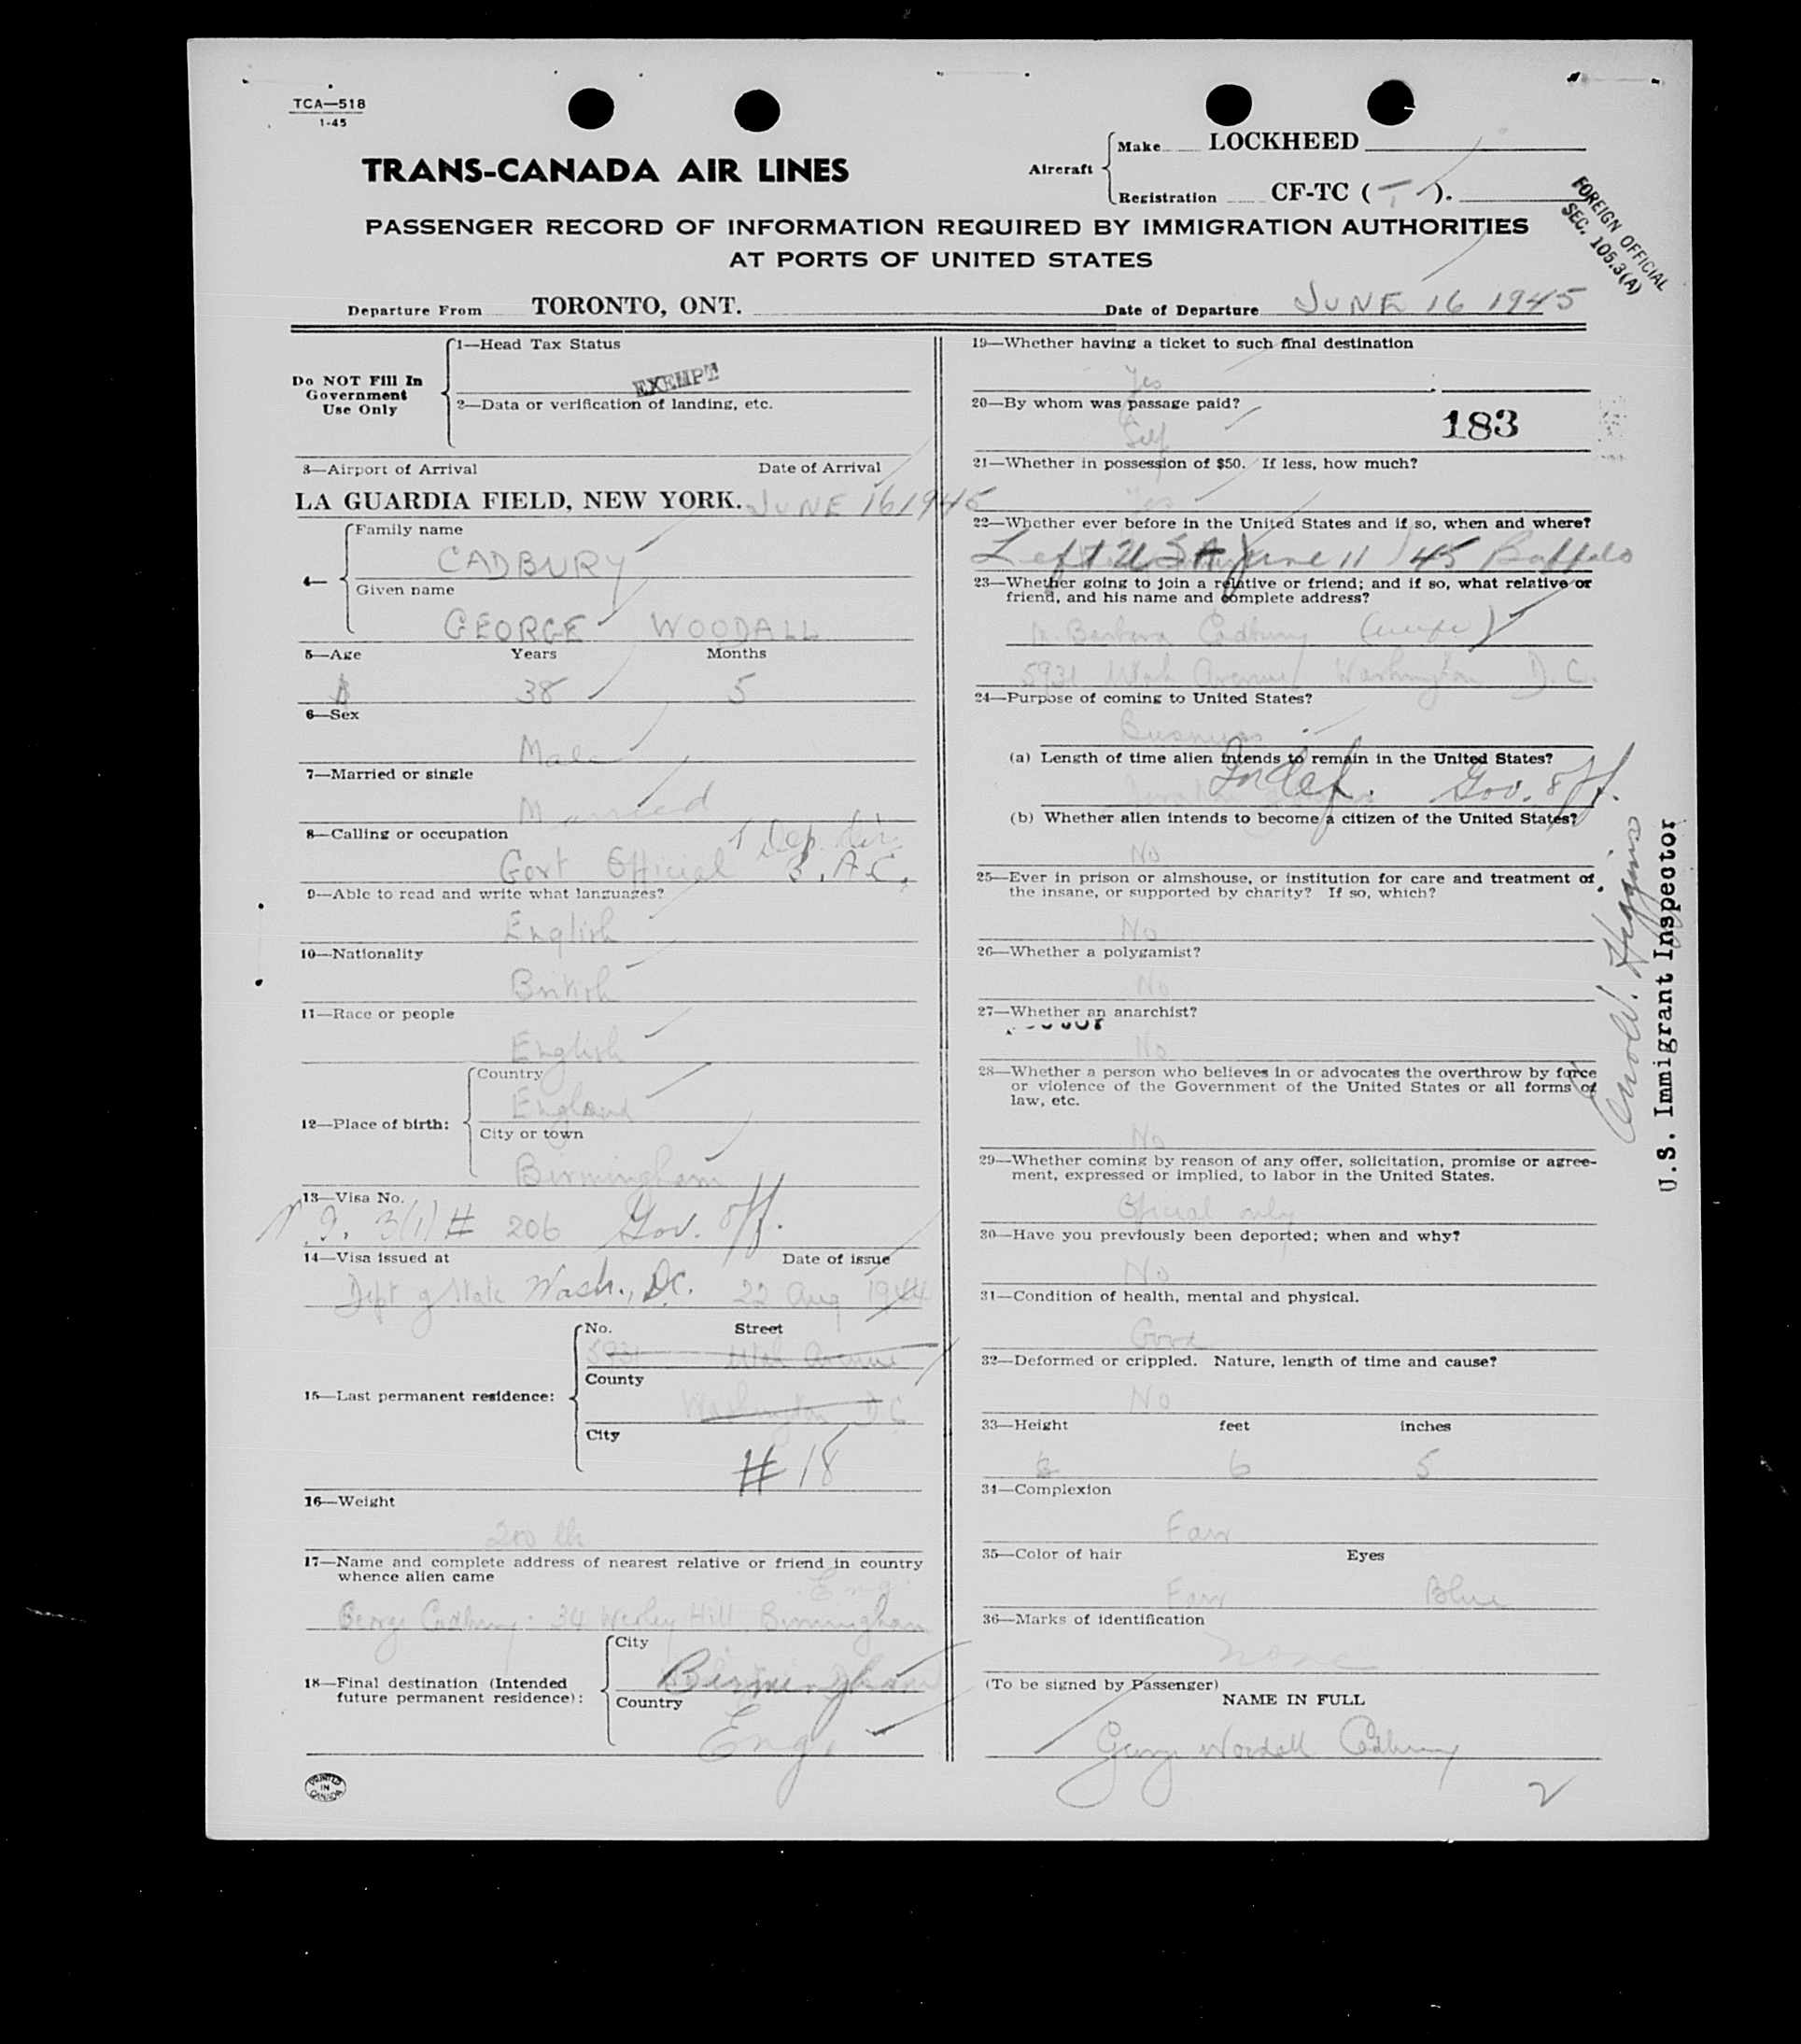 TCA—518
1-45
TRANS-CANADA AIR LINES
Aircraft
Make LOCKHEED
Registration CF-TC ( T ).
FOREIGN OFFICIAL
SEC. 105.3(A)
PASSENGER RECORD OF INFORMATION REQUIRED BY IMMIGRATION AUTHORITIES
AT PORTS OF UNITED STATES
Departure From TORONTO, ONT. Date of Departure JUNE 16 1945
Do NOT Fill In
Government
Use Only
1—Head Tax Status
EXEMPT
2—Data or verification of landing, etc.
3—Airport of Arrival Date of Arrival
LA GUARDIA FIELD, NEW YORK. JUNE 16 1945
4—
Family name
CADBURY
Given name
GEORGE WOODALL
5—Age Years Months
38 5
6—Sex
Male
7—Married or single
Married
8—Calling or occupation
Dep. dir.
Govt Official B.A.C.
9—Able to read and write what languages?
English
10—Nationality
British
11—Race or people
English
12—Place of birth:
Country
England
City or town
Birmingham
13—Visa No.
3(1) # 206 Gov. off.
14—Visa issued at Date of issue
Dept of State Wash., D.C. 22 Aug 1944
15—Last permanent residence:
No. Street
5931 Utah Avenue
County
Washington D C
City
# 18
16—Weight
200 lb
17—Name and complete address of nearest relative or friend in country
whence alien came
Eng.
George Cadbury. 34 Weoley Hill Birmingham
18—Final destination (Intended
future permanent residence):
City
Birmingham
Country
Eng.
PRINTED
IN
CANADA
19—Whether having a ticket to such final destination
Yes
20—By whom was passage paid?
183
Self
21—Whether in possession of $50. If less, how much?
Yes
22—Whether ever before in the United States and if so, when and where?
Left USA June 11/45 Buffalo
23—Whether going to join a relative or friend; and if so, what relative or
friend, and his name and complete address?
M. Barbara Cadbury (wife)
5931 Utah Avenue Washington D.C.
24—Purpose of coming to United States?
Business
(a) Length of time alien intends to remain in the United States?
Indef. Gov. off.
(b) Whether alien intends to become a citizen of the United States?
No
25—Ever in prison or almshouse, or institution for care and treatment of
the insane, or supported by charity? If so, which?
No
26—Whether a polygamist?
No
27—Whether an anarchist?
No
28—Whether a person who believes in or advocates the overthrow by force
or violence of the Government of the United States or all forms of
law, etc.
No
29—Whether coming by reason of any offer, solicitation, promise or agree-
ment, expressed or implied, to labor in the United States.
Official only
30—Have you previously been deported; when and why?
No
31—Condition of health, mental and physical.
Good
32—Deformed or crippled. Nature, length of time and cause?
No
33—Height feet inches
6 5
34—Complexion
Fair
35—Color of hair Eyes
Fair Blue
36—Marks of identification
None
(To be signed by Passenger)
NAME IN FULL
George Woodall Cadbury
2
Higgins
U.S. Immigrant Inspector